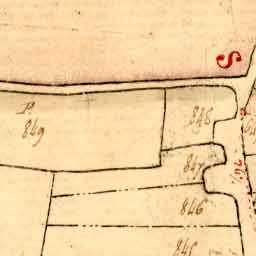 S
P
849
848
847
846
845